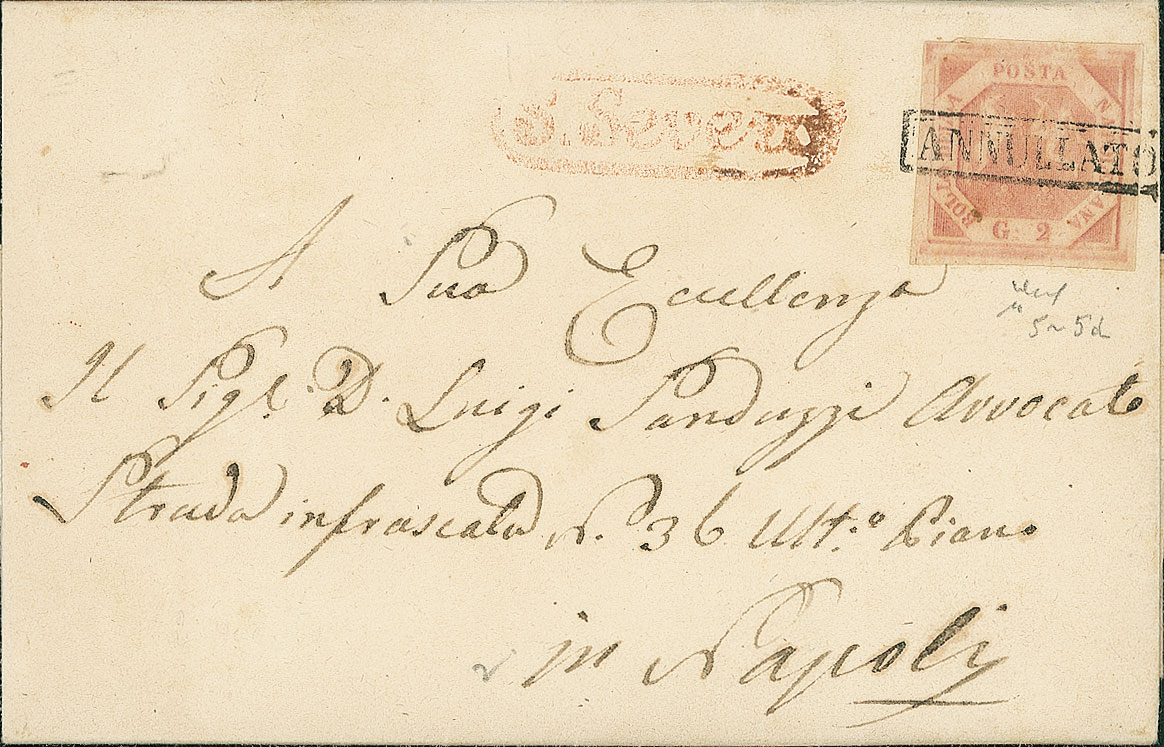 S. Severo.
POSTA
BOLLO NAPOLETANA
G. 2
ANNULLATO
A Sua Eccellenza
Il Sigr. D. Luigi Sanduzzi Avvocato
Strada infrascata N. 36 Ult.o Piano
in Napoli
5 5d